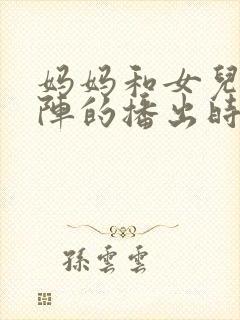 妈妈和女兒
陣的播出時
孫雲雲